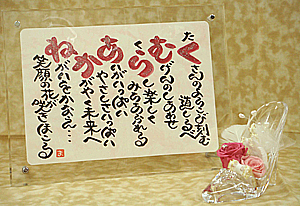 たくさんのよろこび刻む
道しるべ
むげんのしあわせ
くらし楽しく
みちあふれる
あいがいっぱい
やさしさいっぱい
かがやく未来へ
ねがいをかなえ…
笑顔の花が
咲きほこる